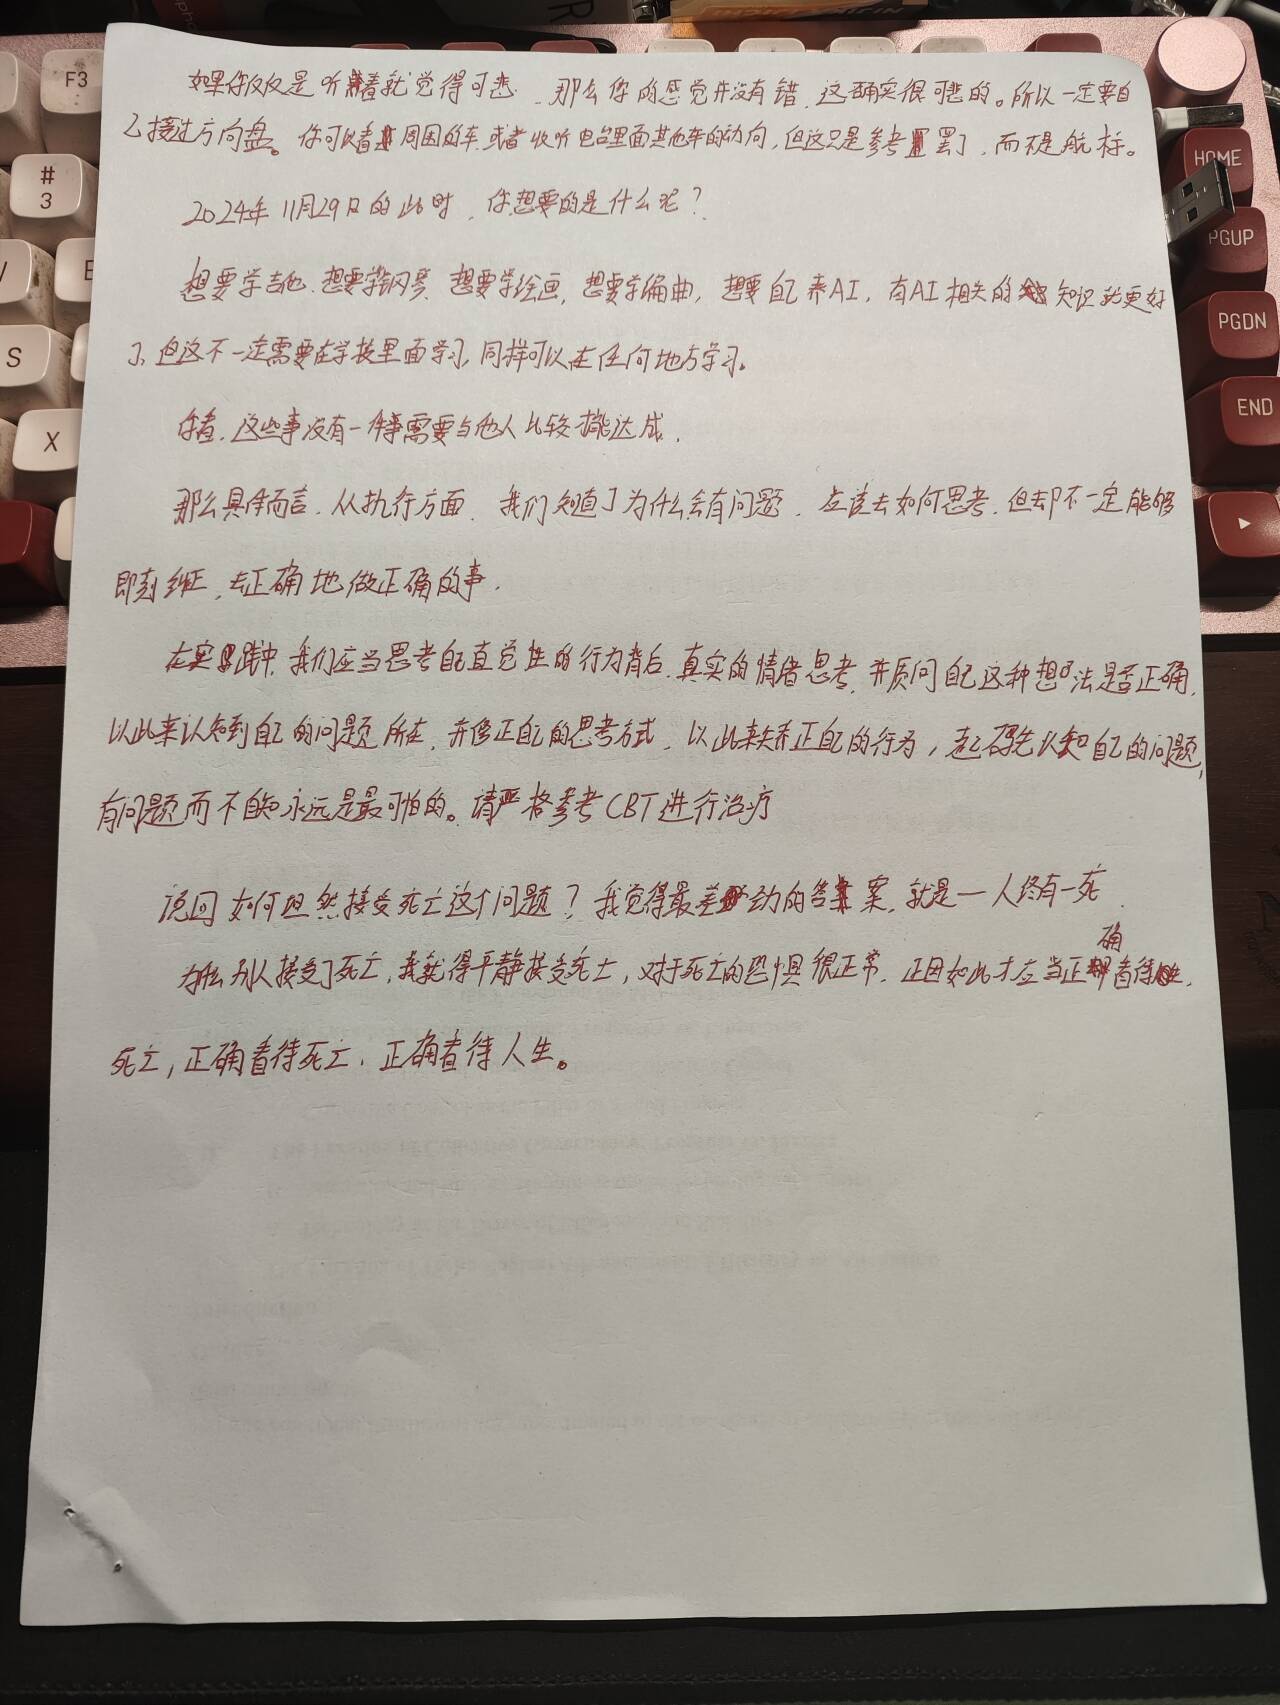 F3
#
3
S
X
HOME
PGUP
PGDN
END
如果你仅仅是听着就觉得可悲、那么你的感觉并没有错、这确实很可悲的。所以一定要自
己接过方向盘。你可以看周围的车、或者收听电台里面其他车的动向，但这只是参考罢了、而不是航标。
2024年11月29日的此时，你想要的是什么呢？
想要学吉他、想要学钢琴、想要学绘画，想要学编曲，想要自己养AI，有AI相关的知识就更好
了、但这不一定需要在学校里面学习，同样可以在任何地方学习。
你看、这些事没有一件事需要与他人比较才能达成、
那么具体而言、从执行方面、我们知道了为什么会有问题、应该去如何思考、但却不一定能够
即刻纠正、去正确地做正确的事、
在实践中、我们应当思考自己直觉性的行为背后、真实的情绪思考、并质问自己这种想法是否正确，
以此来认知到自己的问题所在、并修正自己的思考方式、以此来矫正自己的行为，起码先认知自己的问题，
有问题而不自知永远是最可怕的。请严格参考CBT进行治疗
说回如何坦然接受死亡这个问题？我觉得最差劲的答案，就是一人终有一死、
为什么别人接受了死亡，我就得平静接受死亡，对于死亡的恐惧很正常、正因如此才应当正确看待
死亡，正确看待死亡、正确看待人生。